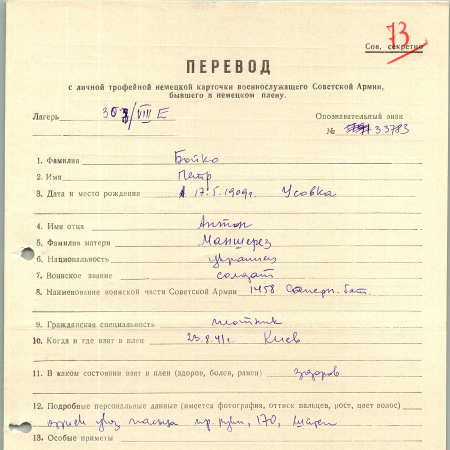 73
Сов. секретно
ПЕРЕВОД
с личной трофейной немецкой карточки военнослужащего Советской Армии,
бывшего в немецком плену.
Лагерь 303/VIII E
Опознавательный знак
№ 33783
1. Фамилия Бойко
2. Имя Петр
3. Дата и место рождения 17.5.1909г. Усовка
4. Имя отца Антон
5. Фамилия матери Маншерез
6. Национальность украинец
7. Воинское звание солдат
8. Наименование воинской части Советской Армии 1458 бат.
9. Гражданская специальность плотник
10. Когда и где взят в плен 23.8.41г. Киев
11. В каком состоянии взят в плен (здоров, болен, ранен) здоров
12. Подробные персональные данные (имеется фотография, оттиск пальцев, рост, цвет волос)
оттиск указ пальца пр. руки, 170,
13. Особые приметы